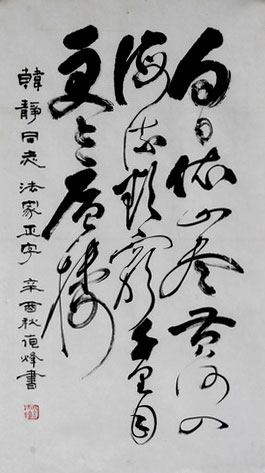 白日依山尽黄河入
海流欲窮千里目
更上一层楼
韓靜同志法家正字 辛酉秋 烽書